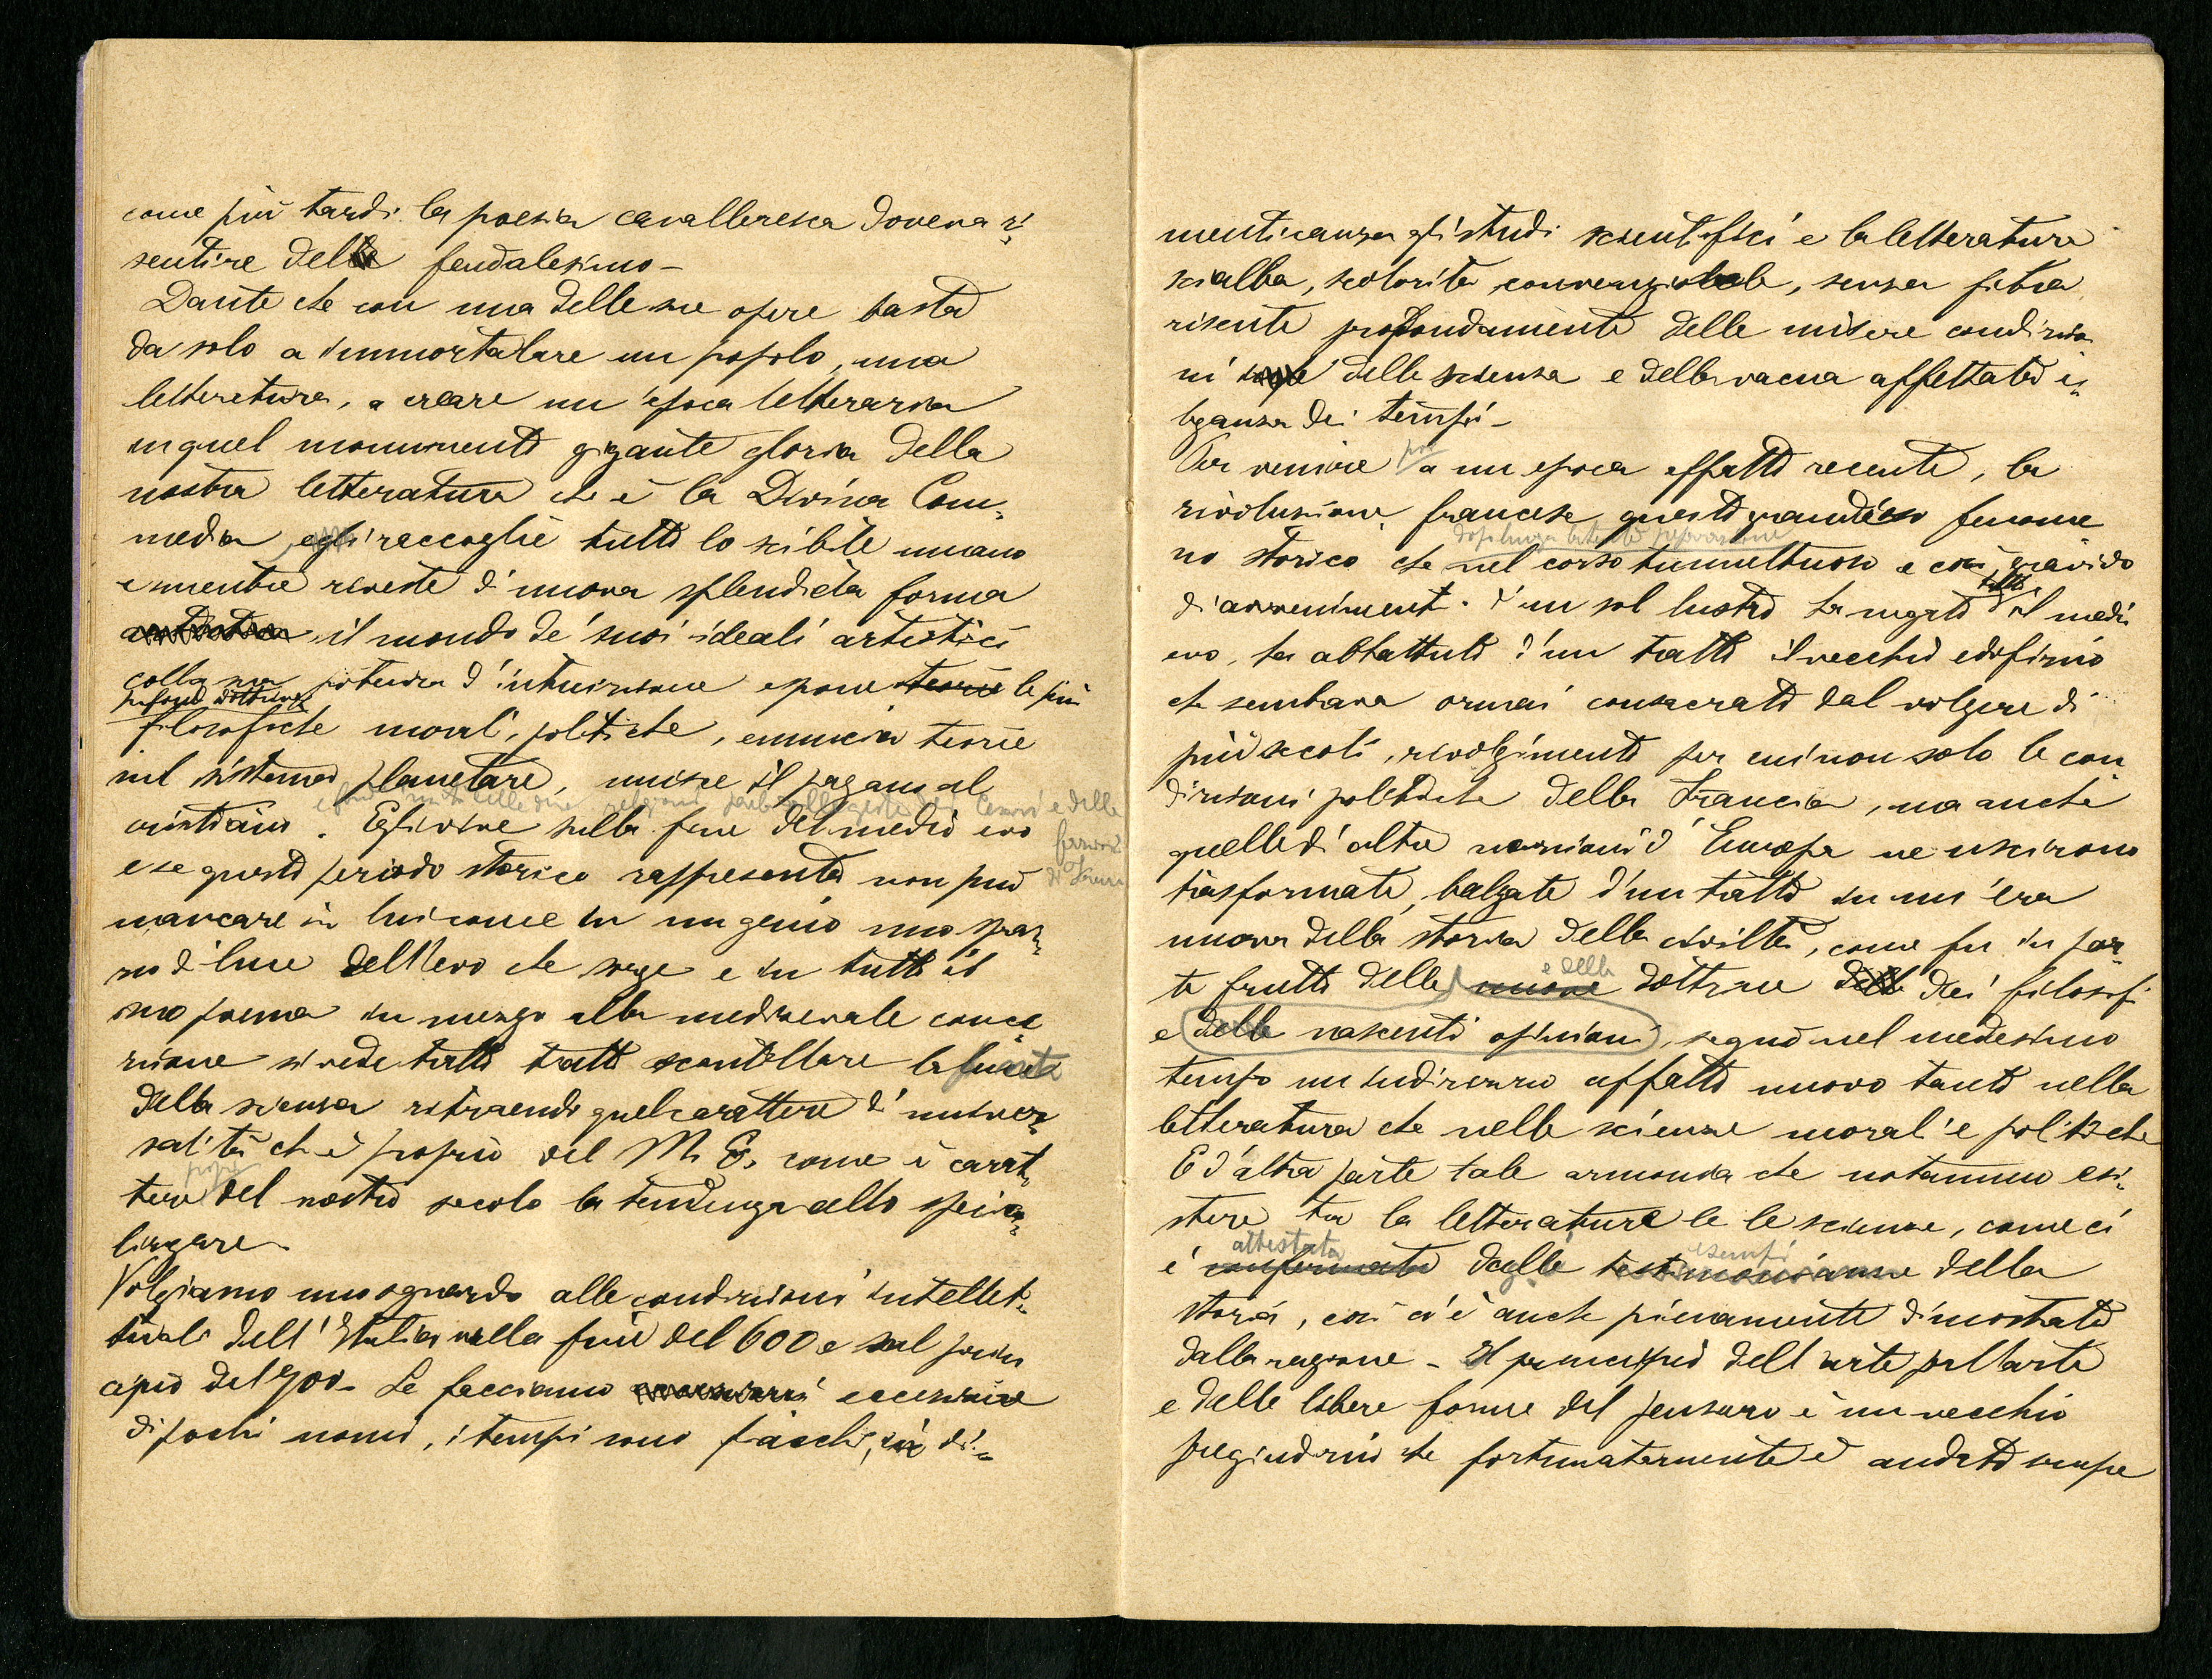 come più tardi la poesia cavalleresca doveva ri„
sentire del feudalesimo –
Dante che con una delle sue opere basta
da solo a immortalare un popolo, una
letteratura, a creare un'epoca letteraria
in quel monumento gigante gloria della
nostra letteratura che è la Divina Com„
media, egli raccoglie tutto lo scibile umano
e mentre riveste di nuova splendida forma
il mondo de' suoi ideali artistici
colla sua potenza d'intuizione espone teorie le più
profonde dottrine
filosofiche morali, politiche, enuncia teorie
sul sistema planetare, unisce il pagano al
cristiano. Egli vive sulla fine del medio evo
e se questo periodo storico rappresenta non può
mancare in lui come in un genio uno spraz„
zo di luce dell'evo che sorge e in tutto il
suo poema in mezzo alla medioevale conce
zione si vede tratto tratto scintillare la
della scienza ritraendo quel carattere di univer„
salità ch'è proprio del M. E. come è carat„
propr
tere del nostro secolo la tendenza allo specia„
lizzare –
Volgiamo uno sguardo alle condizioni intellet„
tuali dell'Italia nella fine del 600 e sul prin
cipio del 700 – Se facciamo eccezione
di pochi nomi, i tempi sono fiacchi, in di„
menticanza gli studi scientifici e la letteratura
scialba, scolorita convenzionale, senza fibra
risente profondamente delle misere condizio
ni delle scienza e della vacua affettata e„
leganza dei tempi –
poi
Per venire a un epoca affatto recente, la
rivoluzione francese questo grandioso fenome
dopo lunga latente preparazione
no storico che nel corso tumultuoso e così gravido
tutto
di avvenimenti d'un sol lustro ha negato il medio
evo, ha abbattuto d'un tratto il vecchio edifizio
che sembrava ormai consacrato dal volgere di
più secoli, rivolgimento per cui non solo le con
dizioni politiche della Francia, ma anche
quelle di altre nazioni d'Europa ne uscirono
trasformate, balzate d'un tratto in un'era
nuova della storia della civiltà, come fu in par„
e delle
te frutto delle nuove dottrine dei filosofi
e delle nascenti opinioni, segnò nel medesimo
tempo un indirizzo affatto nuovo tanto nella
letteratura che nelle scienze morali e politiche
E d'altra parte tale armonia che notammo esi„
stere tra la letteratura e le scienze, come ci
attestata esempi
è confermata dalle testimonianze della
storia, così ci è anche pienamente dimostrata
dalla ragione – Il principio dell'arte per l'arte
e delle libere forme del pensiero è un vecchio
pregiudizio che fortunatamente è andato sempre